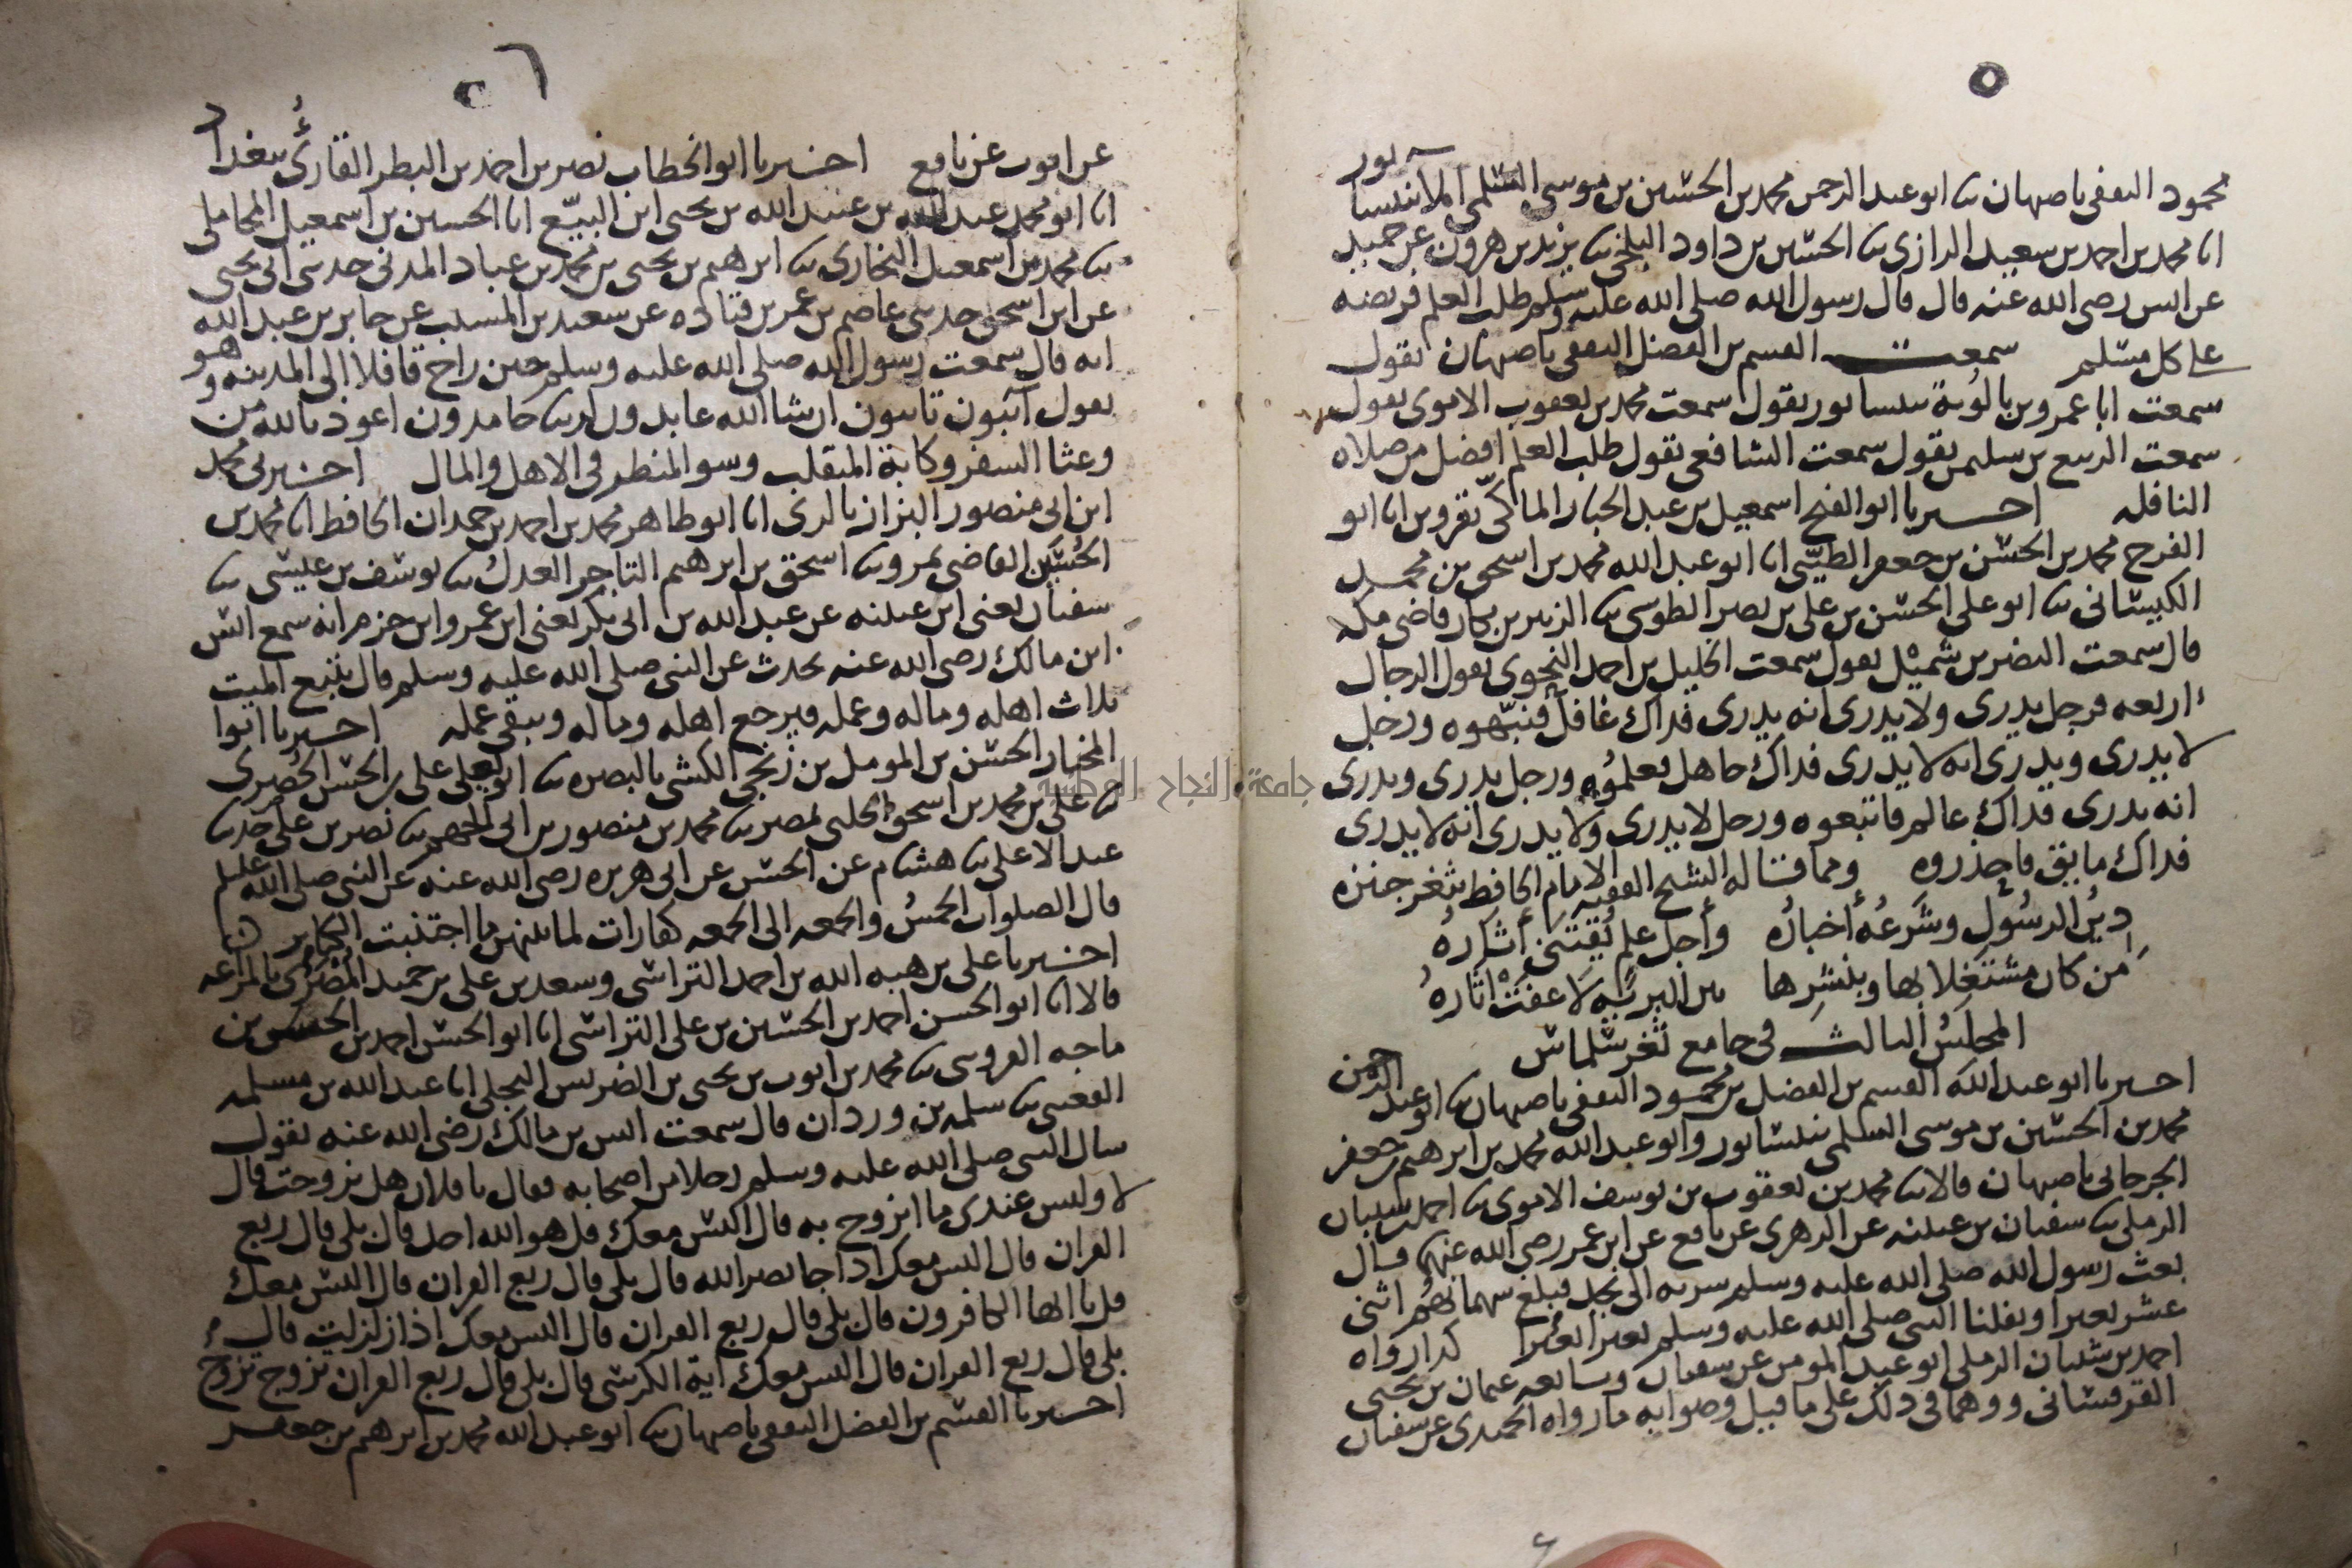 ٥
محمود الثقفي باصبهان نا ابو عبد الرحمن محمد بن الحسين بن موسى السلمي املا بنيسابور
انا محمد بن احمد بن سعيد الرازي نا الحسين بن داود البلخي نا يزيد بن هرون عن حميد
عن انس رضى الله عنه قال قال رسول الله صلى الله عليه وسلم طلب العلم فريضه
على كل مسلم سمعت القسم بن الفضل الثقفي باصبهان يقول
سمعت ابا عمرو بن بالويه بنيسابور يقول سمعت محمد بن يعقوب الاموى يقول
سمعت الربيع بن سليمن يقول سمعت الشافعي يقول طلب العلم افضل من صلاه
النافله اخبرنا ابو الفتح اسمعيل بن عبد الجبار الماكي بقزوين انا ابو
الفرج محمد بن الحسن بن جعفر الطيبي انا ابو عبد الله محمد بن اسحق بن محمد
الكيساني نا ابو علي الحسن بن علي بن نصر الطوسي نا الزبير بن بكار قاضي مكه
قال سمعت النضر بن شميل يقول سمعت الخليل بن احمد النحوي يقول الرجال
اربعه فرجل يدري ولا يدري انه يدري فذاك غافل فنبهوه ورجل
لا يدري ويدري انه لا يدري فذاك جاهل فعلموه ورجل يدري ويدري
انه يدري فذاك عالم فاتبعوه ورجل لا يدري ولا يدري انه لا يدري
فذاك مايق فاحذروه ومما قاله الشيخ الفقيه الامام الحافظ بثغر جنزه
دين الرسول وشرعه أخباره وأجل علم يقتنى أثاره
من كان مشتغلا بها وبنشرها بين البريه لا عفت اثاره
المجلس الثالث في جامع ثغر سلماس
اخبرنا ابو عبد الله القسم بن الفضل بن محمود الثقفي باصبهان نا ابو عبد الرحمن
محمد بن الحسين بن موسى السلمي بنيسابور وابو عبد الله محمد بن ابرهيم بن جعفر
الجرجاني باصبهان قالا نا محمد بن يعقوب بن يوسف الاموى نا احمد بن شيبان
الرملي نا سفيان بن عيينه عن الزهري عن نافع عن ابن عمر رضى الله عنهما قال
بعث رسول الله صلى الله عليه وسلم سريه الى نجد فبلغ سهمانهم اثنى
عشر بعيرا ونفلنا النبي صلى الله عليه وسلم بعيرا بعيرا كذا رواه
احمد بن شيبان الرملي ابو عبد المومن عن سفيان وتابعه عثمان بن يحيى
القرقساني ووهما في ذلك على ما قيل وصوابه ما رواه الحميدي عن سفيان
٥٦
عن ايوب عن نافع اخبرنا ابو الخطاب نصر بن احمد بن البطر القارئ ببغداد
انا ابو محمد عبد الله بن عبيد الله بن يحيى ابن البيع انا الحسين بن اسمعيل المحاملي
نا محمد بن اسمعيل البخاري نا ابرهيم بن يحيى بن محمد بن عباد المدني حدثني ابي يحيى
عن ابن اسحق حدثني عاصم بن عمر بن قتاده عن سعيد بن المسيب عن جابر بن عبد الله
انه قال سمعت رسول الله صلى الله عليه وسلم حين راح قافلا الى المدينه وهو
يقول آئبون تائبون ان شا الله عابدون لربنا حامدون اعوذ بالله من
وعثا السفر وكابة المنقلب وسو المنظر في الاهل والمال اخبرني محمد
ابن ابي منصور البزاز بالري انا ابو طاهر محمد بن احمد بن حمدان الحافظ انا محمد بن
الحسين القاضي بمرو نا اسحق بن ابرهيم التاجر العدل نا يوسف بن عيسى نا
سفيان يعني ابن عيينه عن عبد الله بن ابي بكر يعني ابن عمرو ابن حزم انه سمع انس
ابن مالك رضى الله عنه يحدث عن النبي صلى الله عليه وسلم قال يتبع الميت
ثلاث اهله وماله وعمله فيرجع اهله وماله ويبقى عمله اخبرنا ابوا
المختار الحسن بن المومل بن زنجي الكشي بالبصره نا ابو يعلى علي بن الحسن الحصري
نا علي بن محمد بن اسحق الحلبي بمصر نا محمد بن منصور بن ابي الجهم نا نصر بن علي حدثنا
عبد الاعلى نا هشام عن الحسن عن ابي هريره رضى الله عنه عن النبي صلى الله عليه وسلم
قال الصلوات الخمس والجمعه الى الجمعه كفارات لما بينهن ما اجتنبت الكبائر
اخبرنا علي بن هبه الله بن احمد التراسي وسعد بن علي بن حميد المضري بالمراغه
قالا انا ابو الحسن احمد بن الحسين بن علي التراسي انا ابو الحسن احمد بن الحسن بن
ماجه القزويني نا محمد بن ايوب بن يحيى بن الضريس البجلي انا عبد الله بن مسلمه
القعنبي نا سلمه بن وردان قال سمعت انس بن مالك رضى الله عنه يقول
سال النبي صلى الله عليه وسلم رجلا من اصحابه فقال يا فلان هل تزوجت قال
لا وليس عندي ما اتزوج به قال اليس معك قل هو الله احد قال بلى قال ربع
القران قال اليس معك اذا جا نصر الله قال بلى قال ربع القران قال اليس معك
قل يا ايها الكافرون قال بلى قال ربع القران قال اليس معك اذا زلزلت قال
بلى قال ربع القران قال اليس معك اية الكرسي قال بلى قال ربع القران تزوج تزوج
اخبرنا القسم بن الفضل الثقفي باصبهان نا ابو عبد الله محمد بن ابرهيم بن جعفر
جامعة النجاح الوطنية